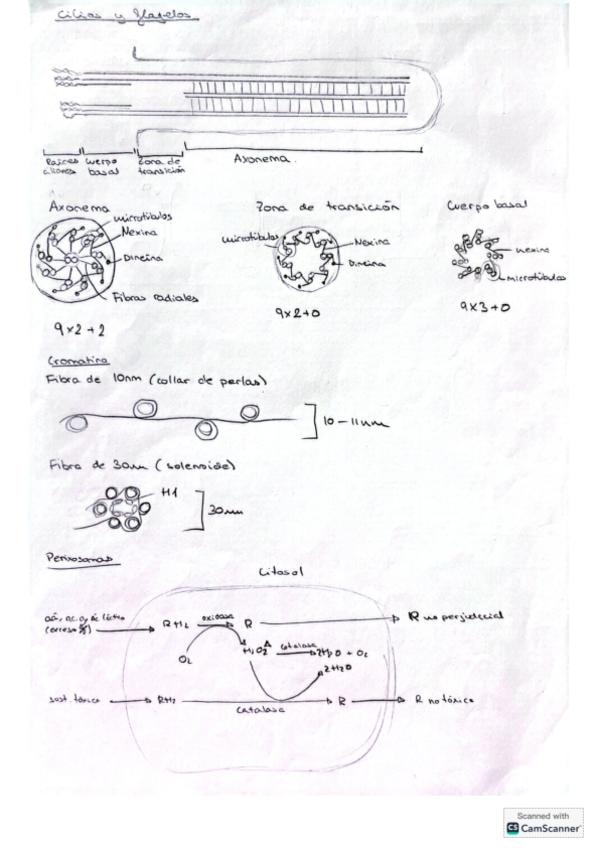 Cilios y flagelos
Raíces ciliares
Cuerpo basal
Zona de transición
Axonema
Axonema
microtúbulos
Nexina
Dineína
Fibras radiales
9x2+2
Zona de transición
microtúbulos
Nexina
Dineína
9x2+0
Cuerpo basal
nexina
microtúbulos
9x3+0
Cromatina
Fibra de 10nm (collar de perlas)
10-11nm
Fibra de 30nm (solenoide)
H1
30nm
Peroxisomas
Citosol
láctico
(exceso
RH2
oxidasa
R
R no perjudicial
O2
H2O2
catalasa
2H2O + O2
2H2O
sust. tóxica
RH2
catalasa
R
R no tóxico
Scanned with
CS CamScanner